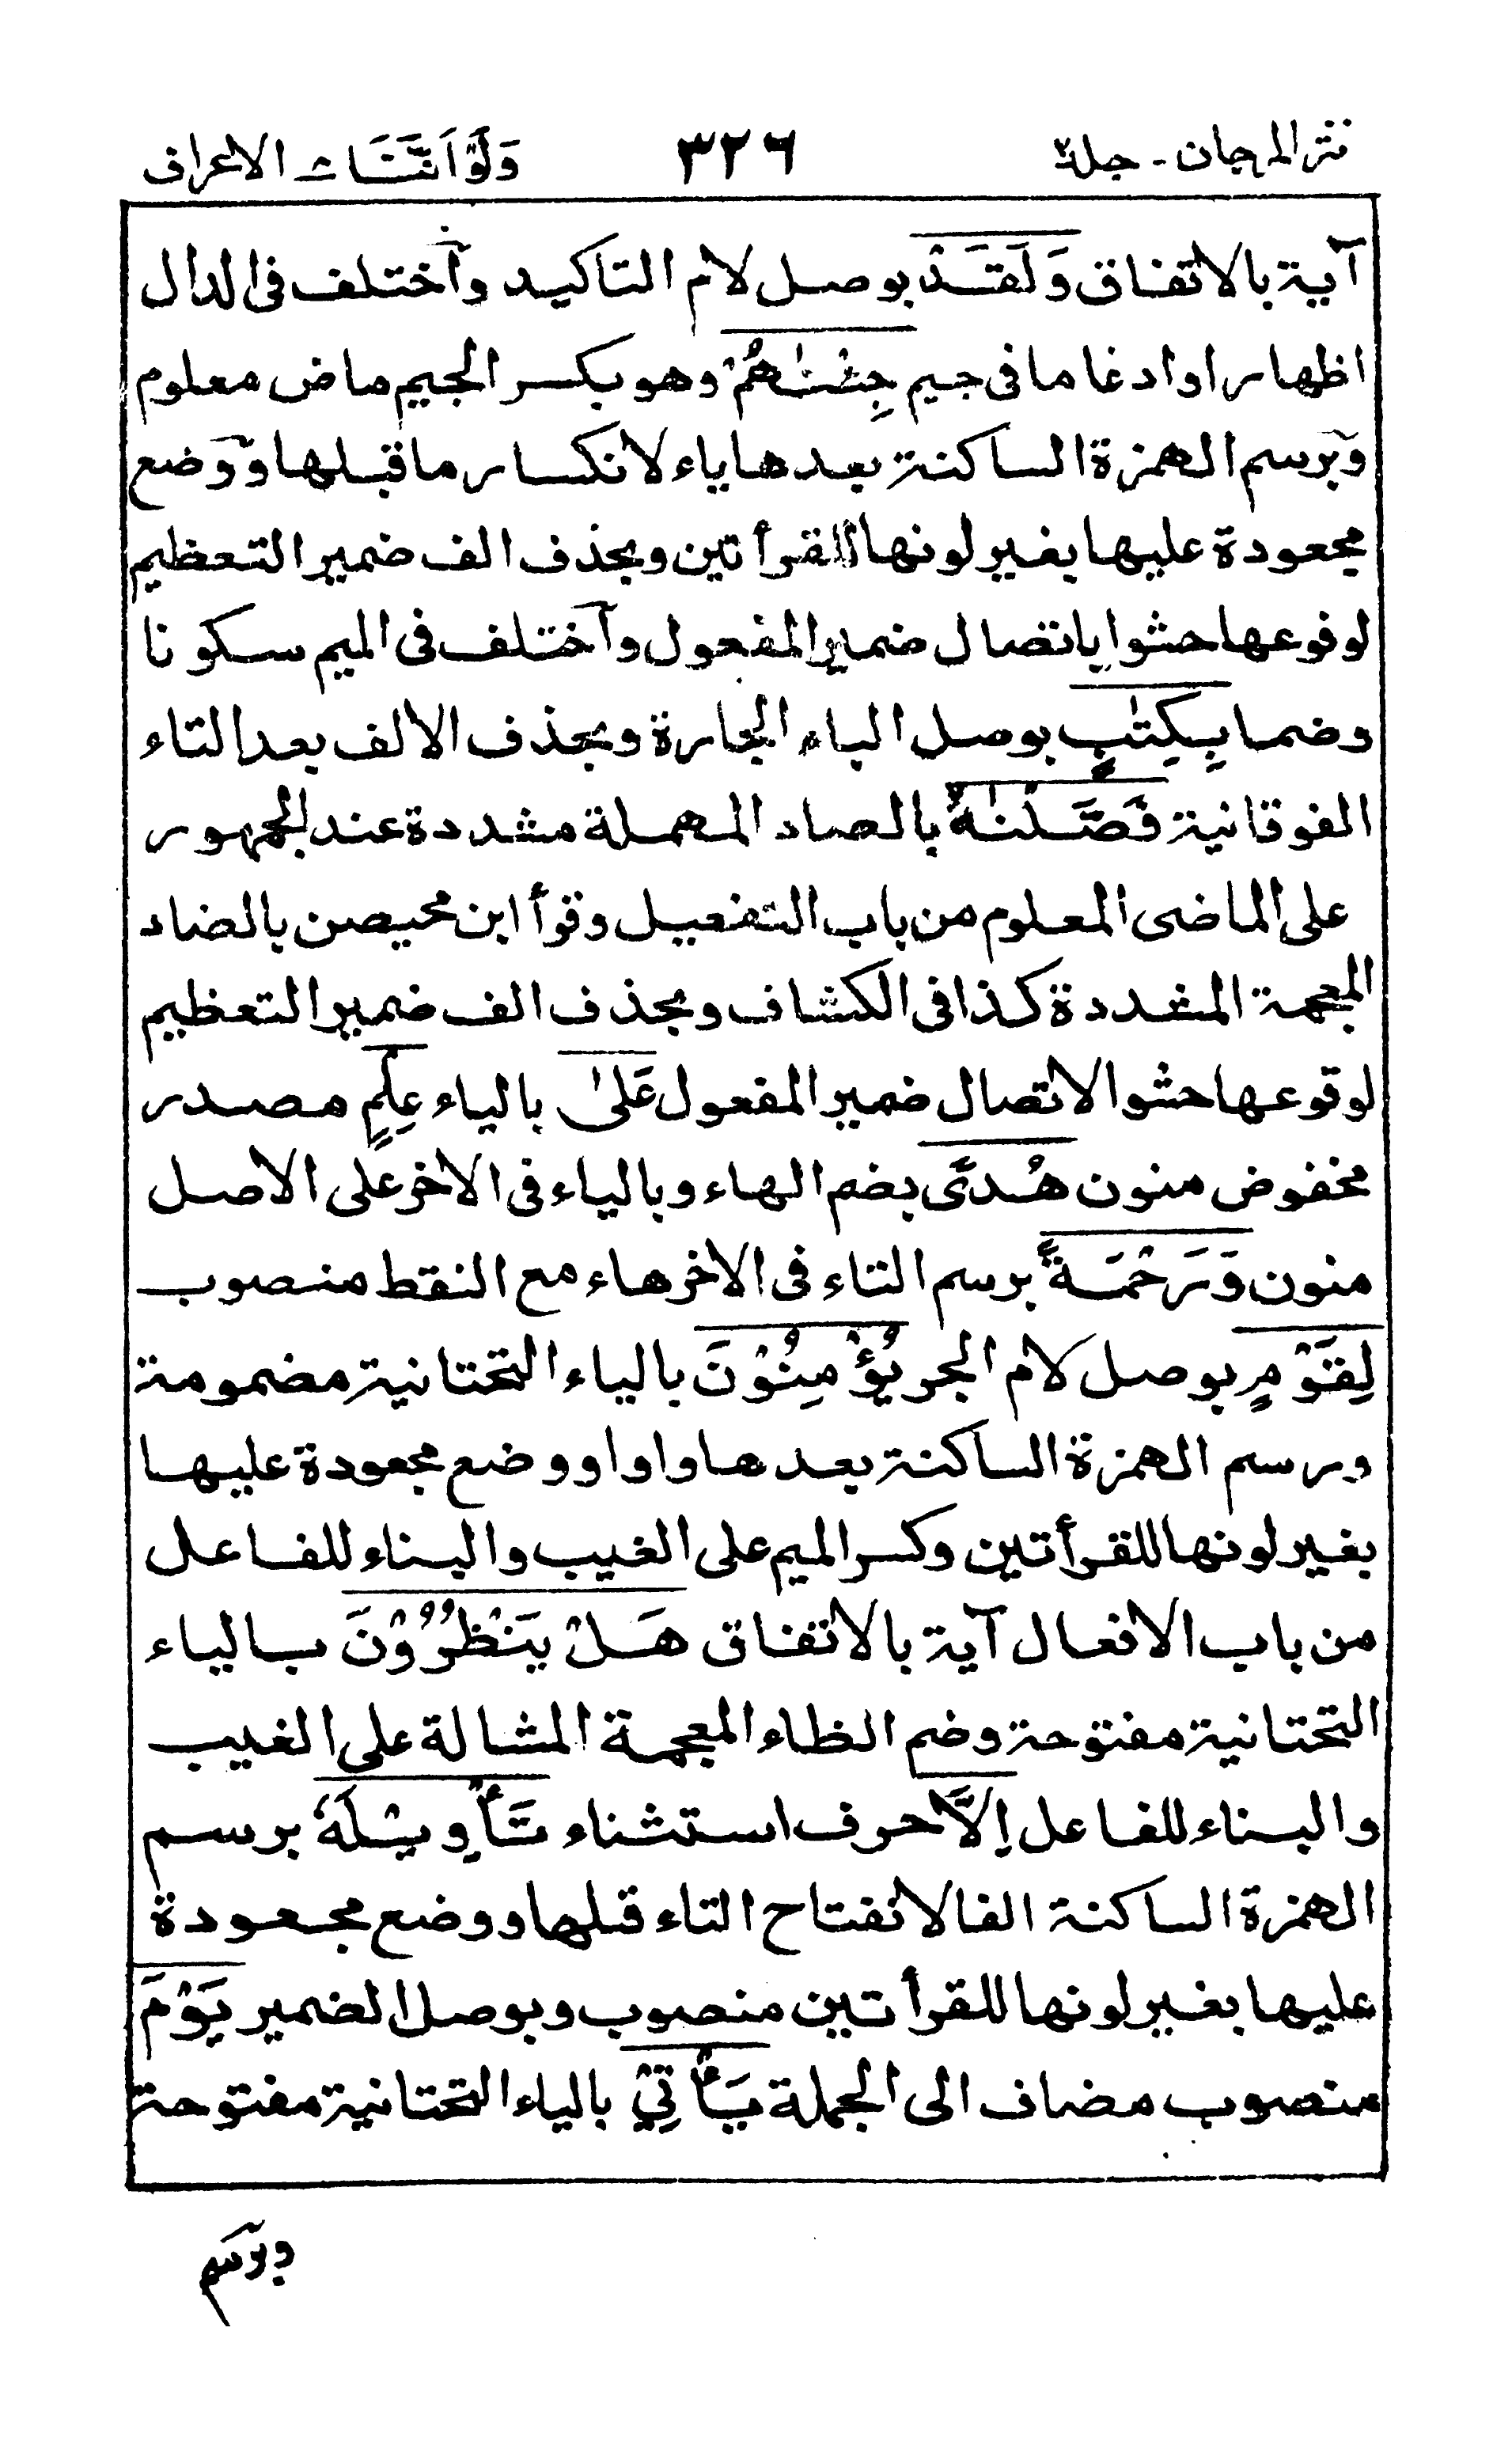 نثر المرجان - جلد٢ ٣٢٦ وَلَوْ اَنَّنَا ٨ الاعراف
آية بالاتفاق وَلَقَدْ بوصل لام التاكيد واختلف فى الدال
اظهارا وادغاما فى جيم جِئْنٰهُمْ وهو بكسر الجيم ماض معلوم
وبرسم الهمزة الساكنة بعدها ياء لانكسار ما قبلها ووضع
مجعودة عليها بغير لونها للقرأتين وبحذف الف ضمير التعظيم
لوقوعها حشوا باتصال ضمير المفعول واختلف فى الميم سكونا
وضما بِكِتٰبٍ بوصل الباء الجارة وبحذف الالف بعد التاء
الفوقانية فَصَّلْنٰهُ بالصاد المهملة مشددة عند الجمهور
على الماضى المعلوم من باب التفعيل وقرأ ابن محيصن بالضاد
المعجمة المشددة كذا فى الكشاف وبحذف الف ضمير التعظيم
لوقوعها حشوا لاتصال ضمير المفعول عَلىٰ بالياء عِلْمٍ مصدر
مخفوض منون هُدًى بضم الهاء وبالياء فى الاخر على الاصل
منون وَرَحْمَةً برسم التاء فى الاخر هاء مع النقط منصوب
لِقَوْمٍ بوصل لام الجر يُؤْمِنُوْنَ بالياء التحتانية مضمومة
ورسم الهمزة الساكنة بعدها واوا ووضع مجعودة عليها
بغير لونها للقرأتين وكسر الميم على الغيب والبناء للفاعل
من باب الافعال آية بالاتفاق هَلْ يَنْظُرُوْنَ بالياء
التحتانية مفتوحة وضم الظاء المعجمة المشالة على الغيب
والبناء للفاعل اِلَّا حرف استثناء تَأْوِيْلَهٗ برسم
الهمزة الساكنة الفا لانفتاح التاء قبلها ووضع مجعودة
عليها بغير لونها للقرأتين منصوب وبوصل الضمير يَوْمَ
منصوب مضاف الى الجملة يَأْتِيْ بالياء التحتانية مفتوحة
وبرسم